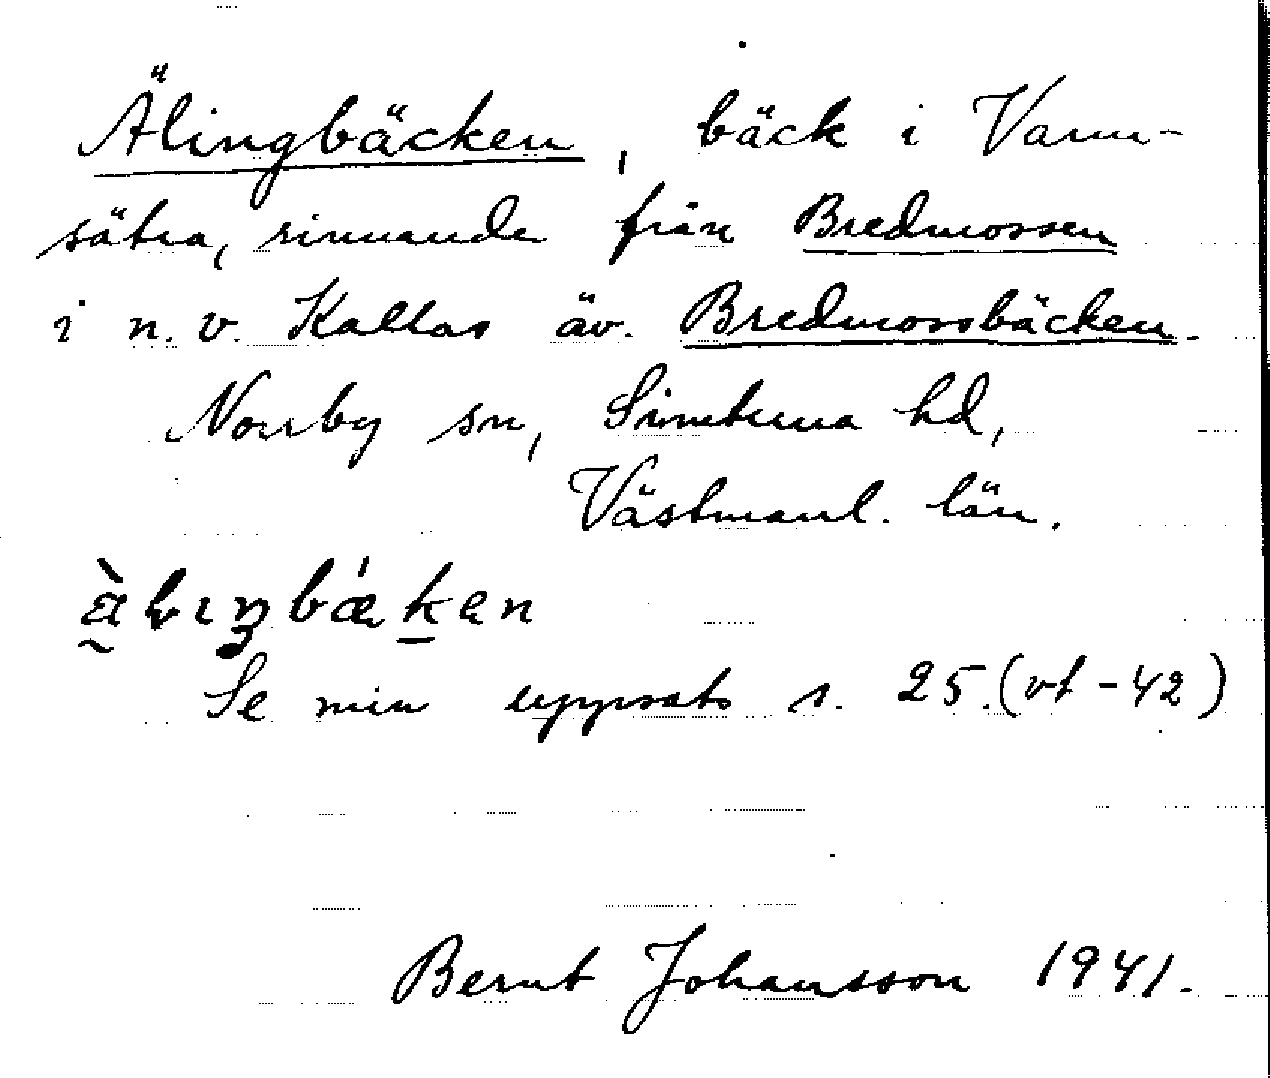 Älingbäcken, bäck i Vann-
sätra, rinnande från Bredmossen
i n. v. Kallas äv. Bredmossbäcken.
Norrby sn, Simtuna hd,
Västmanl. län.
Se min uppsats s. 25. (vt -42)
Bernt Johansson 1941.